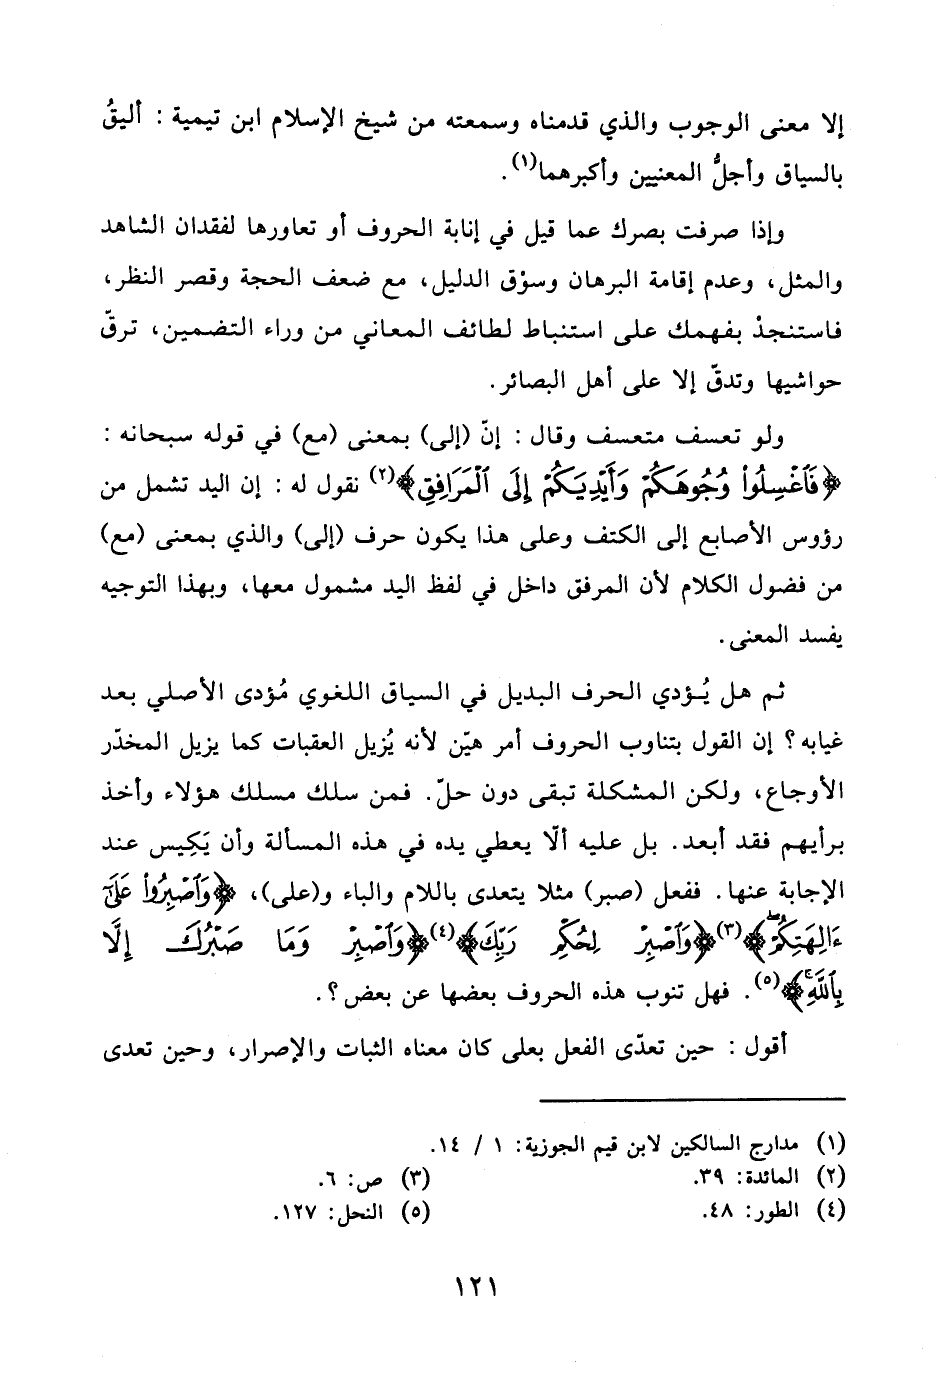 إلا معنى الوجوب والذي قدمناه وسمعته من شيخ الإسلام ابن تيمية : أليقُ
بالسياق وأجلُّ المعنيين وأكبرهما(١).
وإذا صرفت بصرك عما قيل في إنابة الحروف أو تعاورها لفقدان الشاهد
والمثل، وعدم إقامة البرهان وسوْق الدليل، مع ضعف الحجة وقصر النظر،
فاستنجدْ بفهمك على استنباط لطائف المعاني من وراء التضمين، ترقّ
حواشيها وتدقّ إلا على أهل البصائر.
ولو تعسف متعسف وقال : إنّ (إلى) بمعنى (مع) في قوله سبحانه :
﴿فَٱغْسِلُوا۟ وُجُوهَكُمْ وَأَيْدِيَكُمْ إِلَى ٱلْمَرَافِقِ﴾(٢) نقول له : إن اليد تشمل من
رؤوس الأصابع إلى الكتف وعلى هذا يكون حرف (إلى) والذي بمعنى (مع)
من فضول الكلام لأن المرفق داخل في لفظ اليد مشمول معها، وبهذا التوجيه
يفسد المعنى.
ثم هل يُؤدي الحرف البديل في السياق اللغوي مُؤدى الأصلي بعد
غيابه؟ إن القول بتناوب الحروف أمر هيّن لأنه يُزيل العقبات كما يزيل المخدّر
الأوجاع، ولكن المشكلة تبقى دون حلّ. فمن سلك مسلك هؤلاء وأخذ
برأيهم فقد أبعد. بل عليه ألّا يعطي يده في هذه المسألة وأن يَكِيس عند
الإجابة عنها. ففعل (صبر) مثلا يتعدى باللام والباء و(على)، ﴿وَٱصْبِرُوا۟ عَلَىٰٓ
ءَالِهَتِكُمْ ۖ﴾(٣) ﴿وَٱصْبِرْ لِحُكْمِ رَبِّكَ﴾(٤) ﴿وَٱصْبِرْ وَمَا صَبْرُكَ إِلَّا
بِٱللَّهِ ۚ﴾(٥). فهل تنوب هذه الحروف بعضها عن بعض؟.
أقول : حين تعدّى الفعل بعلى كان معناه الثبات والإصرار، وحين تعدى
(١) مدارج السالكين لابن قيم الجوزية: ١ / ١٤.
(٢) المائدة: ٣٩. (٣) ص: ٦.
(٤) الطور: ٤٨. (٥) النحل: ١٢٧.
١٢١